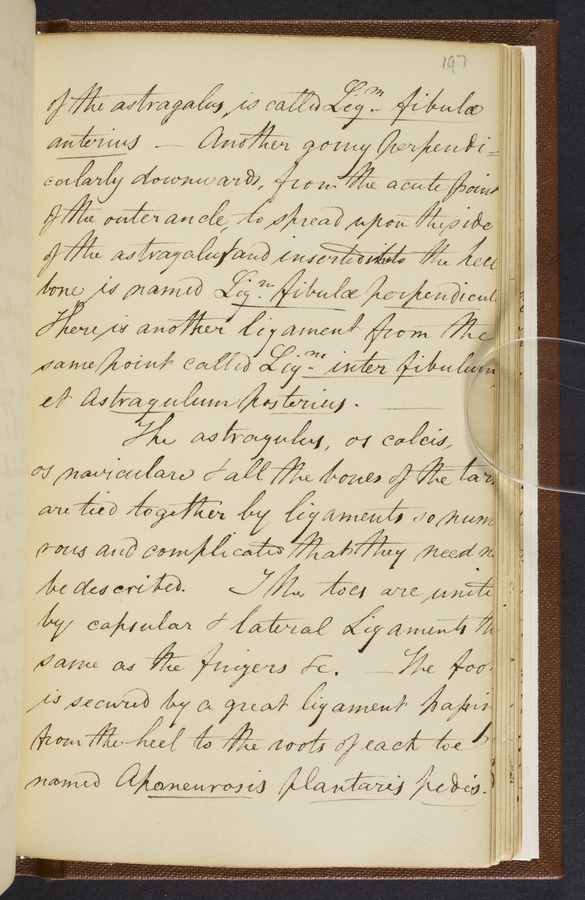 197
of the astragalus, is called Ligm fibulæ
anterius — Another going perpendi=
cularly downwards, from the acute point
of the outer ancle, to spread upon the side
of the astragalus and inserted into the heel
bone is named Ligm. fibulæ perpendicul
There is another ligament from the
same point called Ligm. inter fibulum
et Astragulum posterius. —
The astragulus, os calcis,
os naviculare & all the bones of the tar
are tied together by ligaments so num
rous and complicated that they need n
be described. The toes are unite
by capsular & lateral Ligaments th
same as the fingers &c. — The foo
is secured by a great ligament passin
from the heel to the roots of each toe
named Aponeurosis plantaris pedis.